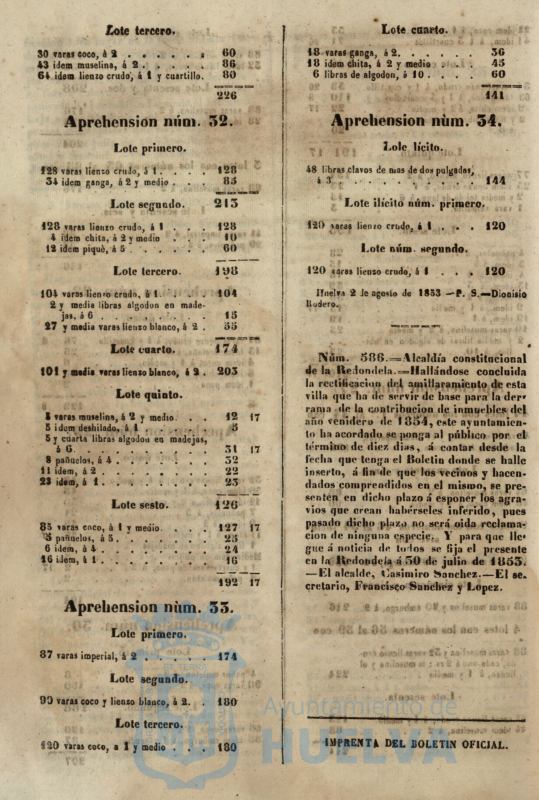 Lote tercero.
30 varas coco, á 2 . . . . . . 60
43 idem muselina, á 2 . . . . . 86
64 idem lienzo crudo, á 1 y cuartillo. 80
226
Aprehension núm. 32.
Lote primero.
128 varas lienzo crudo, á 1. . . . 128
34 idem ganga, á 2 y medio . . . 85
Lote segundo. 213
128 varas lienzo crudo, á 1 . . . 128
4 idem chita, á 2 y medio . . . 10
12 idem piqué, á 5 . . . . . 60
Lote tercero. 198
104 varas lienzo crudo, á 1. . . . 104
2 y media libras algodon en made-
jas, á 6 . . . . . . . . 15
27 y media varas lienzo blanco, á 2 . 55
Lote cuarto. 174
101 y media varas lienzo blanco, á 2 . 203
Lote quinto.
5 varas muselina, á 2 y medio. . . 12 17
5 idem deshilado, á 1 . . . . . 5
5 y cuarta libras algodon en madejas,
á 6. . . . . . . . . 31 17
8 pañuelos, á 4 . . . . . . 32
11 idem, á 2 . . . . . . . 22
23 idem, á 1. . . . . . . . 23
Lote sesto. 126
85 varas coco, á 1 y medio. . . . 127 17
5 pañuelos, á 5. . . . . . . 25
6 idem, á 4 . . . . . . . . 24
16 idem, á 1 . . . . . . . . 16
192 17
Aprehension nùm. 33.
Lote primero.
87 varas imperial, á 2 . . . . . 174
Lote segundo.
90 varas coco y lienzo blanco, á 2. . 180
Lote tercero.
120 varas coco, a 1 y medio . . . 180
Lote cuarto.
18 varas ganga, á 2. . . . . . 36
18 idem chita, á 2 y medio . . . . 45
6 libras de algodon, á 10 . . . . 60
141
Aprehension nùm. 34.
Lote lícito.
48 libras clavos de mas de dos pulgadas,
á 3 . . . . . . . . . 144
Lote ilícito núm. primero.
120 varas lienzo crudo, á 1 . . . 120
Lote núm. segundo.
120 varas lienzo crudo, á 1 . . . 120
Huelva 2 de agosto de 1853 —P. S.—Dionisio
Rodero.
Núm. 586.=Alcaldía constitucional
de la Redondela.=Hallándose concluida
la rectificacion del amillaramiento de esta
villa que ha de servir de base para la der-
rama de la contribucion de inmuebles del
año venidero de 1854, este ayuntamien-
to ha acordado se ponga al público por el
término de diez dias, á contar desde la
fecha que tenga el Boletin donde se halle
inserto, á fin de que los vecinos y hacen-
dados comprendidos en el mismo, se pre-
senten en dicho plazo á esponer los agra-
vios que crean habérseles inferido, pues
pasado dicho plazo no será oida reclama-
cion de ninguna especie. Y para que lle-
gue á noticia de todos se fija el presente
en la Redondela á 30 de julio de 1853.
—El alcalde, Casimiro Sanchez.—El se.
cretario, Francisco Sanchez y Lopez.
Ayuntamiento de
HUELVA
IMPRENTA DEL BOLETIN OFICIAL.